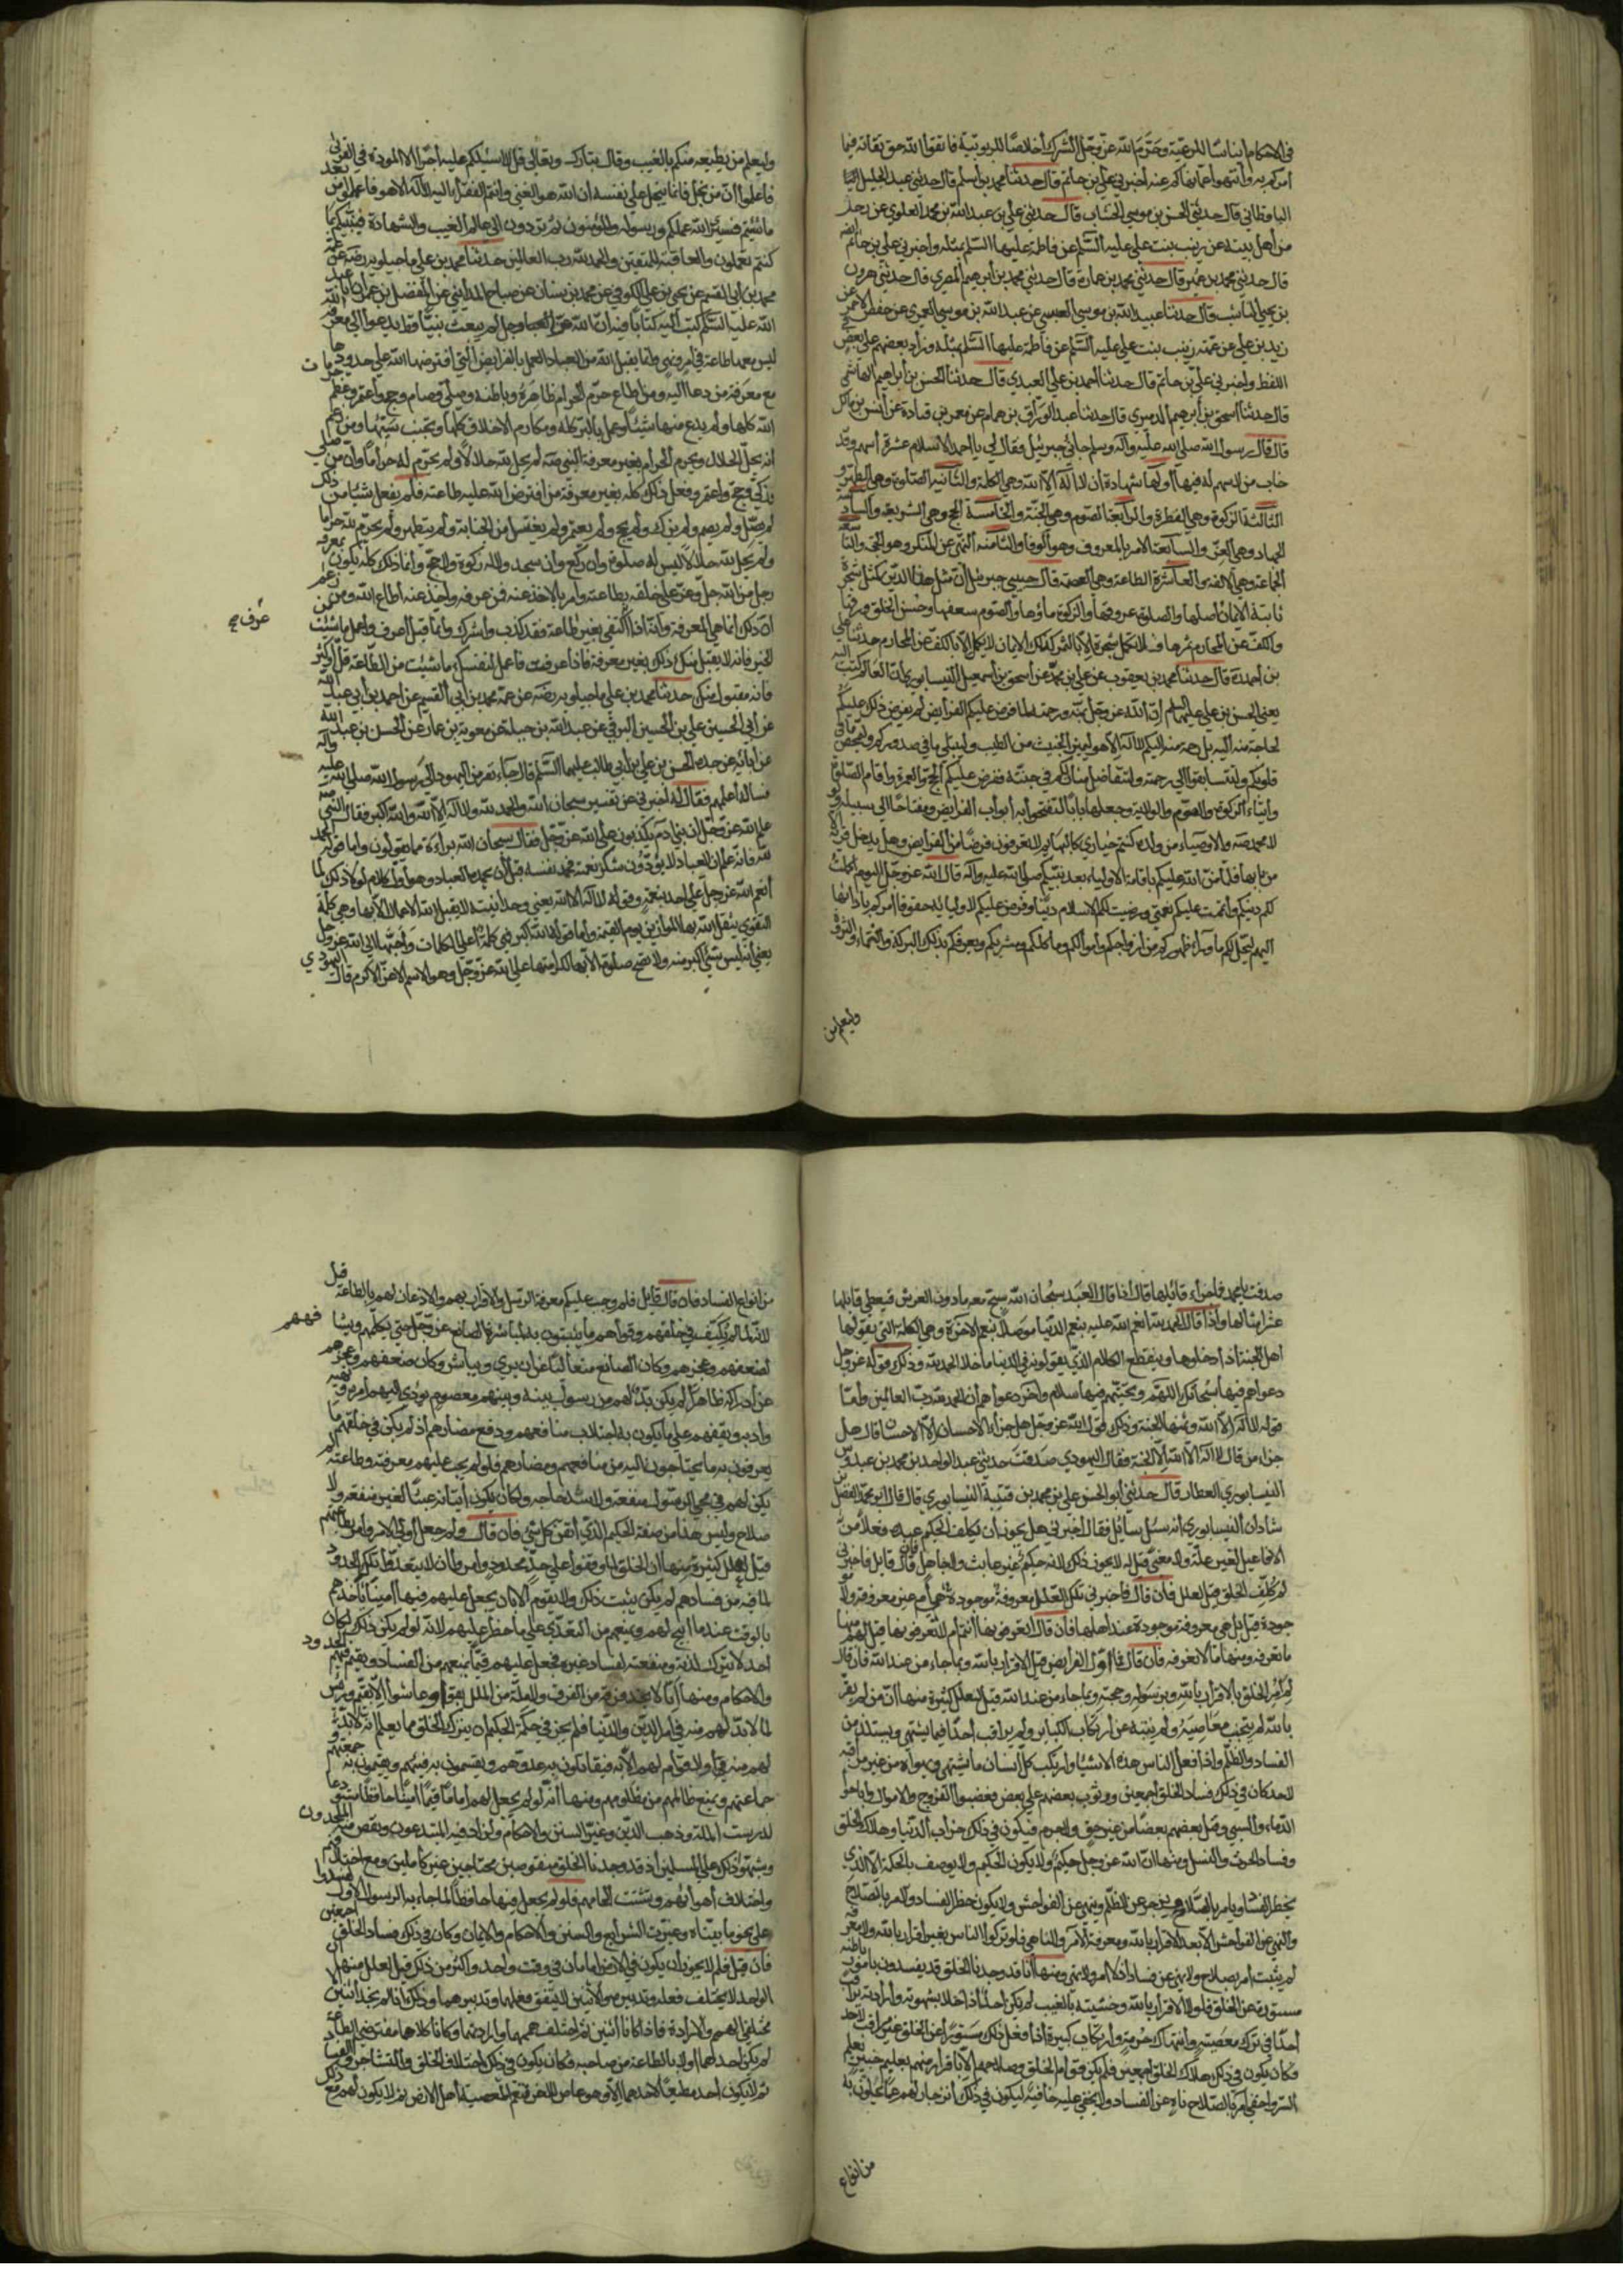 في الاحكام ايناسًا للرعيّة وحَرَّمَ الله عزّ وجلّ الشرك اخلاصًا للربوبيّة فاتقوا الله حق تقاته فيما
امركم به وانتهوا عما نهاكم عنه اخبرني علي بن حاتم قال حدثنا محمد بن اسلم قال حدثني عبد الجليل
الباقطاني قال حدثني الحسن بن موسى الخشاب قال حدثني علي بن عبدالله بن محمد العلوي عن رجل
من اهل بيته عن زينب بنت علي عليه السّلم عن فاطمة عليها السّلم بمثله واخبرني علي بن حاتم
قال حدثني محمد بن عمير قال حدثني محمد بن عمارة قال حدثني محمد بن ابرهيم المصري قال حدثني هرون
بن يحيى الناشب قال حدثنا عبيد الله بن موسى العبسي عن عبد الله بن موسى العمري عن حفص الاحمر عن
زيد بن علي عن عمته زينب بنت علي عليه السّلم عن فاطمة عليها السّلم بمثله وزاد بعضهم على بعض في
اللفظ واخبرني علي بن حاتم قال حدثنا احمد بن علي العبدي قال حدثنا الحسن بن ابراهيم الهاشمي
قال حدثنا اسحق بن ابرهيم الدبيري قال حدثنا عبد الرزاق بن همام عن معمر بن قتادة عن انس بن مالك
قال قال رسول الله صلى الله عليه وآله وسلم جاءني جبرئيل فقال لي يا احمد الاسلام عشرة اسهم وقد
خاب من لا سهم له فيها اولها شهادة ان لا اله الا الله وهي الكلمة والثانية الصلوة وهي الطهر و
الثالثة الزكوة وهي الفطرة والرابعة الصوم وهي الجنة والخامسة الحج وهي الشريعة والسادسة
الجهاد وهي العزّ والسابعة الامر بالمعروف وهو الوفا والثامنة النهي عن المنكر وهو الحجة والتاسعة
الجماعة وهي الالفة والعاشرة الطاعة وهي العصمة قال حبيبي جبرئيل ان مثل هذا الدين كمثل شجرة
ثابتة الايمان اصلها والصلوة عروقها والزكوة ماؤها والصوم سعفها وحسن الخلق ورقها
والكف عن المحارم ثمرها فلا تكمل شجرة الا بالثمر كذلك الايمان لا يكمل الا بالكف عن المحارم حدثنا علي
بن احمد قال حدثنا محمد بن يعقوب عن علي بن محمد عن اسحق بن اسمعيل النيسابوري ان العالم كتب اليه
يعني الحسن بن علي عليهما السلم ان الله عز وجل بمنه ورحمته لما فرض عليكم الفرايض لم يفرض ذلك عليكم
لحاجة منه اليه بل رحمة منه اليكم لا اله الا هو ليميز الخبيث من الطيب وليبتلي ما في صدوركم وليمحص ما في
قلوبكم ولتتسابقوا الى رحمته ولتتفاضل منازلكم في جنته ففرض عليكم الحج والعمرة واقام الصلوة
وايتاء الزكوة والصوم والولاية وجعل لها بابًا لتفتحوا به ابواب الفرايض ومفتاحًا الى سبيله ولولا
محمد صه والاوصياء من ولده كنتم حيارى كالبهايم لا تعرفون فرضًا من الفرايض وهل يدخل قرية الا
من بابها فلما منّ الله عليكم باقامة الاولياء بعد نبيكم صلى الله عليه وآله قال الله عز وجل اليوم اكملت
لكم دينكم واتممت عليكم نعمتي ورضيت لكم الاسلام دينًا وفرض عليكم لاوليائه حقوقا امركم بادائها
اليهم ليحل لكم ما وراء ظهوركم من ازواجكم واموالكم وماكلكم ومشربكم ويعرفكم بذلك البركة والنماء والثروة
وليعلم من
وليعلم من يطيعه منكم بالغيب وقال تبارك وتعالى قل لا اسئلكم عليه اجرًا الا المودة في القربى
فاعلموا ان من يبخل فانما يبخل على نفسه ان الله هو الغني وانتم الفقراء اليه لا اله الا هو فاعملوا من بعد
ما شئتم فسيرى الله عملكم ورسوله والمؤمنون ثم تردون الى عالم الغيب والشهادة فينبئكم بما
كنتم تعملون والعاقبة للمتقين والحمد لله رب العالمين حدثنا محمد بن علي ماجيلويه رضه عن عمه
محمد بن ابي القسم عن يحيى بن علي الكوفي عن محمد بن سنان عن صباح المدايني عن المفضل بن عمر ان ابا عبد
الله عليه السّلم كتب اليه كتابًا فيه ان الله عز وجل لم يبعث نبيًّا قط يدعوا الى معرفة الله
ليس معها طاعة في امر ونهي وانما يقبل الله من العباد العمل بالفرايض التي افترضها الله على حدودها
مع معرفة من دعا اليه ومن اطاع حرم الحرام ظاهره وباطنه وصلى وصام وحج واعتمر وعظم حرمات
الله كلها ولم يدع منها شيئًا وعمل بالبر كله ومكارم الاخلاق كلها وتجنب سيئها ومن زعم
انه يحل الحلال ويحرم الحرام بغير معرفة النبي صه لم يحل لله حلالاً ولم يحرم له حرامًا وان من صلى
وزكى وحج واعتمر وفعل ذلك كله بغير معرفة من افترض الله عليه طاعته فلم يفعل شيئا من ذلك
لم يصل ولم يصم ولم يزك ولم يحج ولم يعتمر ولم يغتسل من الجنابة ولم يتطهر ولم يحرم لله حراما
ولم يحل لله حلالا ليس له صلوة وان ركع وان سجد ولا له زكوة ولا حج وانما ذلك كله يكون بمعرفة
رجل من الله جل وعز على خلقه بطاعته وامر بالاخذ عنه فمن عرفه واخذ عنه اطاع الله ومن زعم
ان ذلك انما هي المعرفة وانه اذا اكتفى بغير طاعة فقد كذب واشرك وانما قيل اعرف واعمل ما شئت من
عرف صح
الخير فانه لا يقبل منك ذلك بغير معرفة فاذا عرفت فاعمل لنفسك ما شئت من الطاعة قل او كثر
فانه مقبول منك حدثنا محمد بن علي ماجيلويه رضه عن عمه محمد بن ابي القسم عن احمد بن ابي عبد الله
عن ابي الحسين علي بن الحسين البرقي عن عبد الله بن جبلة عن معوية بن عمار عن الحسن بن عبد الله
عن آبائه عن جده الحسن بن علي بن ابي طالب عليهما السّلم قال جاء نفر من اليهود الى رسول الله صلى الله عليه وآله
فسأله اعلمهم فقال له اخبرني عن تفسير سبحان الله والحمد لله ولا اله الا الله والله اكبر فقال النبي صه
علم الله عز وجل ان بني ادم يكذبون على الله عز وجل فقال سبحان الله براءة مما يقولون واما قوله الحمد
لله فانه علم ان العباد لا يؤدون شكر نعمته فحمد نفسه قبل ان يحمده العباد وهو اول الكلام لولا ذلك لما
انعم الله عز وجل على احد بنعمته وقوله لا اله الا الله يعني وحدانيته لا يقبل الله الاعمال الا بها وهي كلمة
التقوى يثقل الله بها الموازين يوم القيمة واما قوله الله اكبر فهي كلمة اعلى الكلمات واحبها الى الله عز وجل
يعني انه ليس شيء اكبر منه ولا تصح صلوة الا بها لكرامتها على الله عز وجل وهو الاسم الاعز الاكرم قال اليهودي
صدقت يا محمد فما جزاء قائلها قال اذا قال العبد سبحان الله سبح معه ما دون العرش فيعطى قائلها
عشر امثالها واذا قال الحمد لله انعم الله عليه بنعم الدنيا موصلاً بنعم الاخرة وهي الكلمة التي يقولها
اهل الجنة اذا دخلوها وينقطع الكلام الذي يقولونه في الدنيا ما خلا الحمد لله وذلك قوله عز وجل
دعواهم فيها سبحانك اللهم وتحيتهم فيها سلام وآخر دعواهم ان الحمد لله رب العالمين واما
قوله لا اله الا الله فثمنها الجنة وذلك قول الله عز وجل هل جزاء الاحسان الا الاحسان قال هل
جزاء من قال لا اله الا الله الا الجنة فقال اليهودي صدقت حدثني عبد الواحد بن محمد بن عبدوس
النيسابوري العطار قال حدثني ابو الحسن علي بن محمد بن قتيبة النيسابوري قال قال ابو محمد الفضل بن
شاذان النيسابوري ان سئل سائل فقال اخبرني هل يجوز ان يكلف الحكيم عبده فعلاً من
الافاعيل لغير علة ولا معنى قيل له لا يجوز ذلك لانه حكيم غير عابث ولا جاهل فان قال قايل فاخبرني
لم كلف الخلق قيل لعلل فان قال فاخبرني تلك العلل معروفة موجودة هي ام غير معروفة ولا
موجودة قيل بل هي معروفة موجودة عند اهلها فان قال اتعرفونها انتم ام لا تعرفونها قيل لهم منها
ما نعرفه ومنها ما لا نعرفه فان قال فما اول الفرايض قيل الاقرار بالله وبما جاء من عند الله فان قال
لم امر الخلق بالاقرار بالله وبرسوله وحجته وبما جاء من عند الله قيل لعلل كثيرة منها ان من لم يقر
بالله لم يتجنب معاصيه ولم ينته عن ارتكاب الكباير ولم يراقب احدًا فيما يشتهي ويستلذ من
الفساد والظلم واذا فعل الناس هذه الاشياء وارتكب كل انسان ما يشتهي ويهواه من غير مراقبة
لاحد كان في ذلك فساد الخلق اجمعين ووثوب بعضهم على بعض فغصبوا الفروج والاموال واباحوا
الدماء والسبي وقتل بعضهم بعضًا من غير حق ولا جرم فيكون في ذلك خراب الدنيا وهلاك الخلق
وفساد الحرث والنسل ومنها ان الله عز وجل حكيم ولا يكون الحكيم ولا يوصف بالحكمة الا الذي
يحظر الفساد ويامر بالصلاح ويزجر عن الظلم وينهى عن الفواحش ولا يكون حظر الفساد والامر بالصلاح
والنهي عن الفواحش الا بعد الاقرار بالله ومعرفة الآمر والناهي فلو ترك الناس بغير اقرار بالله ولا معرفته
لم يثبت امر بصلاح ولا نهي عن فساد اذ لا امر ولا نهي ومنها انا قد وجدنا الخلق قد يفسدون بامور باطنة
مستورة عن الخلق فلولا الاقرار بالله وخشيته بالغيب لم يكن احد اذا خلا بشهوته وارادته يراقب
احدًا في ترك معصيته وانتهاك حرمته وارتكاب كبيرة اذا فعل ذلك مستورًا عن الخلق غير مراقب لاحد
فكان يكون في ذلك هلاك الخلق اجمعين فلم يكن قوام الخلق وصلاحهم الا بالاقرار منهم بعليم خبير يعلم
السر واخفى آمر بالصلاح ناه عن الفساد ولا يخفى عليه خافية ليكون في ذلك انزجار لهم عما يخلون به
من انواع
من انواع الفساد فان قال قايل فلم وجب عليكم معرفة الرسل والاقرار بهم والاذعان لهم بالطاعة قيل
لانه لما لم يكتف في خلقهم وقواهم ما يثبتون به لمباشرة الصانع عز وجل حتى يكلمهم ويشافههم
لضعفهم وعجزهم وكان الصانع متعاليًا عن ان يرى ويباشر وكان ضعفهم وعجزهم
عن ادراكه ظاهرًا لم يكن بد لهم من رسول بينه وبينهم معصوم يؤدي اليهم امره ونهيه
وادبه ويقفهم على ما يكون به اجتلاب منافعهم ودفع مضارهم اذ لم يكن في خلقهم ما
يعرفون به ما يحتاجون اليه من منافعهم ومضارهم فلو لم يجب عليهم معرفته وطاعته لم
يكن لهم في مجيء الرسول منفعة ولا سد حاجة ولكان يكون اتيانه عبثًا لغير منفعة ولا
صلاح وليس هذا من صفة الحكيم الذي اتقن كل شيء فان قال ولم جعل اولي الامر وامر بطاعتهم
قيل لعلل كثيرة منها ان الخلق لما وقفوا على حد محدود وامروا ان لا يتعدوا تلك الحدود
لما فيه من فسادهم لم يكن يثبت ذلك ولا يقوم الا بان يجعل عليهم فيها امينًا ياخذهم
بالوقت عند ما ابيح لهم ويمنعهم من التعدي على ما حظر عليهم لانه لو لم يكن ذلك لكان
احد لا يترك لذته ومنفعته لفساد غيره فجعل عليهم قيمًا يمنعهم من الفساد ويقيم فيهم الحدود
والاحكام ومنها انا لا نجد فرقة من الفرق ولا ملة من الملل بقوا وعاشوا الا بقيم ورئيس
لما لا بد لهم منه في امر الدين والدنيا فلم يجز في حكمة الحكيم ان يترك الخلق مما يعلم انه لا بد
لهم منه ولا قوام لهم الا به فيقاتلون به عدوهم ويقسمون به فيئهم ويقيمون به جمعتهم و
جماعتهم ويمنع ظالمهم من مظلومهم ومنها انه لو لم يجعل لهم امامًا قيمًا امينًا حافظًا مستودعا
لدرست الملة وذهب الدين وغيرت السنن والاحكام ولزاد فيه المبتدعون ونقص منه الملحدون
وشبهوا ذلك على المسلمين اذ قد وجدنا الخلق منقوصين محتاجين غير كاملين ومع اختلافهم
واختلاف اهوائهم وتشتت انحائهم فلو لم يجعل فيها حافظًا لما جاء به الرسول الاول لفسدوا
على نحو ما بيناه وغيرت الشرايع والسنن والاحكام والايمان وكان في ذلك فساد الخلق اجمعين
فان قيل فلم لا يجوز ان يكون في الارض امامان في وقت واحد واكثر من ذلك قيل لعلل منها ان
الواحد لا يختلف فعله وتدبيره والاثنين لا يتفق فعلهما وتدبيرهما وذلك انا لم نجد اثنين الا
مختلفي الهمم والارادة فاذا كانا اثنين ثم اختلف هممهما وارادتهما وكانا كلاهما مفترضي الطاعة
لم يكن احدهما اولى بالطاعة من صاحبه فكان يكون في ذلك اختلاف الخلق والتشاجر والفساد
ثم لا يكون احد مطيعًا لاحدهما الا وهو عاص للاخر فتعم المعصية اهل الارض ثم لا يكون لهم مع ذلك